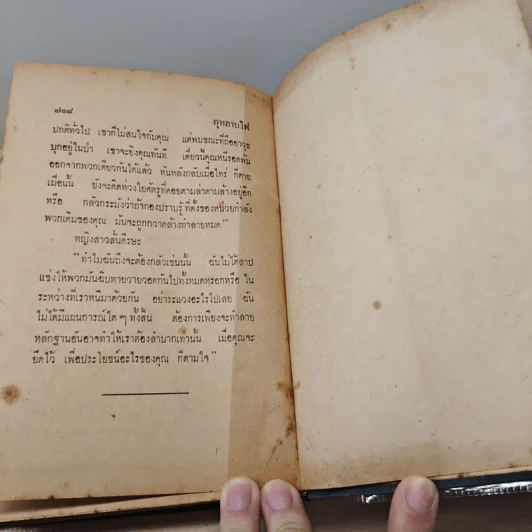 ๗๐๘
กุหลาบไฟ
ปกติทั่วไป เขาก็ไม่สนใจกับคุณ แต่พบขณะที่ถืออาวุธ
บุกอยู่ในป่า เขาจะยิงคุณทันที เดี๋ยวนี้คุณหนีรอดพ้น
ออกจากพวกเดียวกันได้แล้ว หันหลังกลับเมื่อไหร่ ก็ตาย
เมื่อนั้น ยังจะคิดห่วงใยศัตรูที่คอยตามล่าตามล้างอยู่อีก
หรือ กลัวกระมังว่าถ้ากองปราบรู้ที่ตั้งของหน่วยกำลัง
พวกเดิมของคุณ มันจะถูกกวาดล้างทำลายหมด"
หญิงสาวสั่นศีรษะ
"ทำไมฉันถึงจะต้องกลัวเช่นนั้น ฉันไม่ได้สาป
แช่งให้พวกมันฉิบหายวายวอดกันไปทั้งหมดหรอกหรือ ใน
ระหว่างที่เราหนีมาด้วยกัน อย่าระแวงอะไรไปเลย ฉัน
ไม่ได้มีแผนการณ์ใดๆ ทั้งสิ้น ต้องการเพียงจะทำลาย
หลักฐานอันอาจทำให้เราต้องลำบากเท่านั้น เมื่อคุณจะ
ยึดไว้ เพื่อประโยชน์อะไรของคุณ ก็ตามใจ"